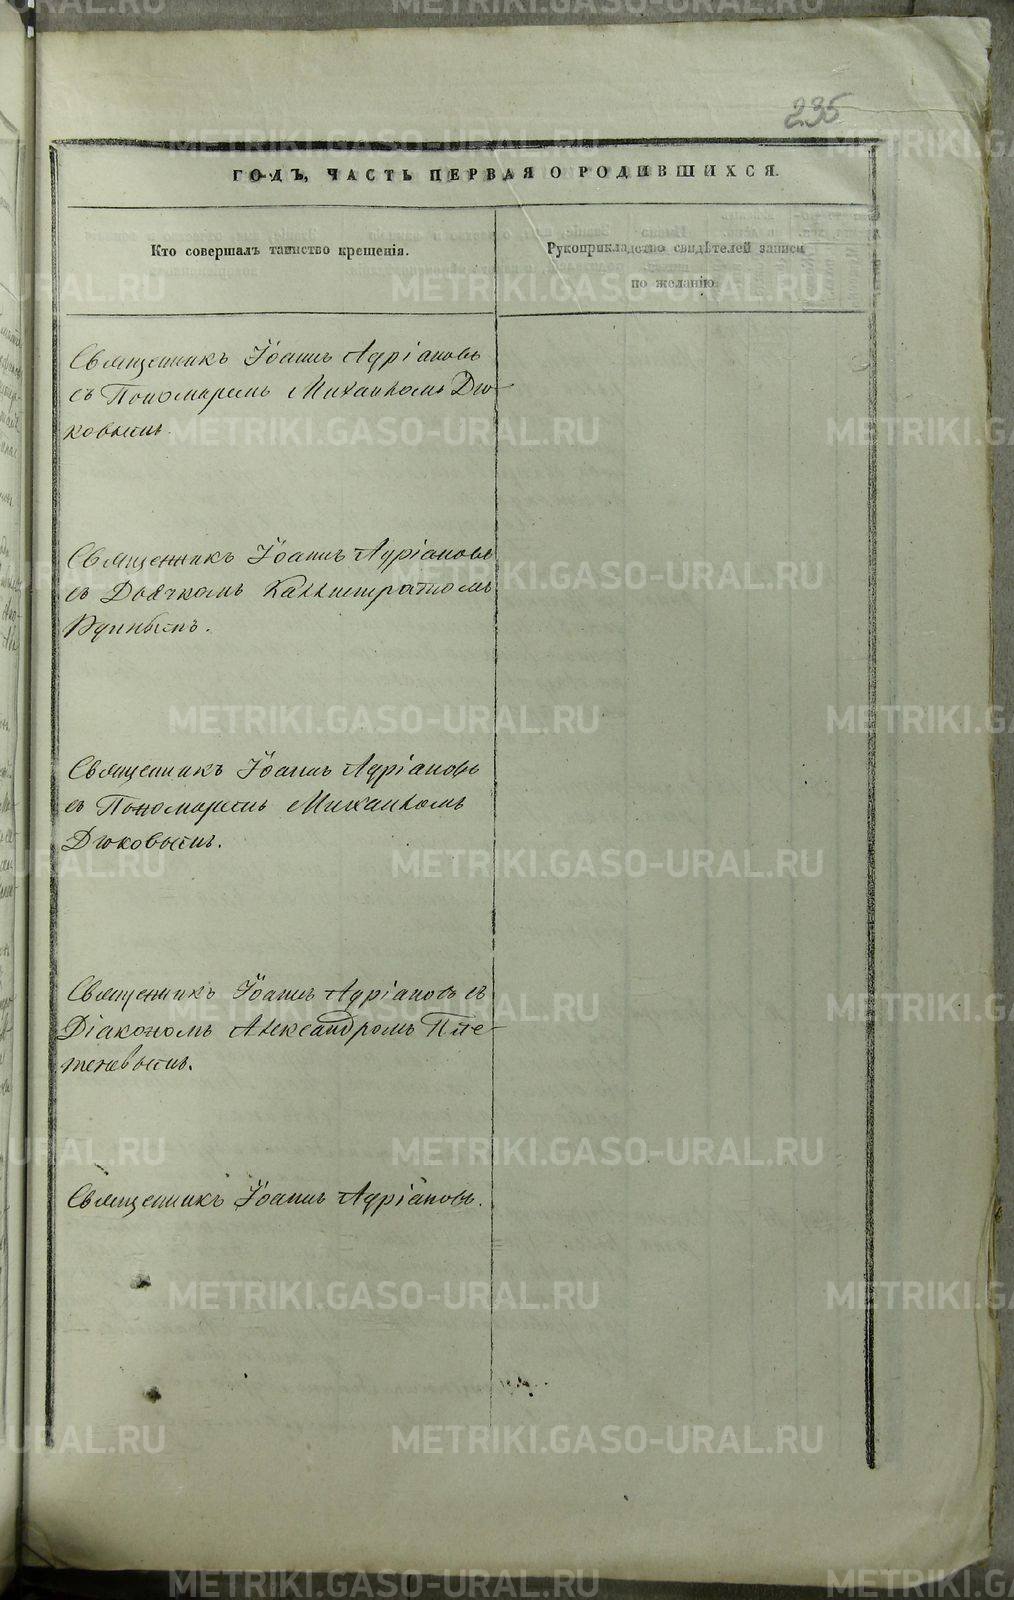 235
ГОДЪ, ЧАСТЬ ПЕРВАЯ О РОДИВШИХСЯ.
Кто совершалъ таинство крещенія.
Рукоприкладство свидѣтелей записи
по желанію.
Священникъ Іоаннъ Адріановъ
съ Пономаремъ Михаиломъ Дю-
ковымъ.
Священникъ Іоаннъ Адріановъ
съ Дьячкомъ Каллистратомъ
Священникъ Іоаннъ Адріановъ
съ Пономаремъ Михаиломъ
Дюковымъ.
Священникъ Іоаннъ Адріановъ съ
Діакономъ Александромъ Пле-
теневымъ.
Священникъ Іоаннъ Адріановъ.
METRIKI.GASO-URAL.RU